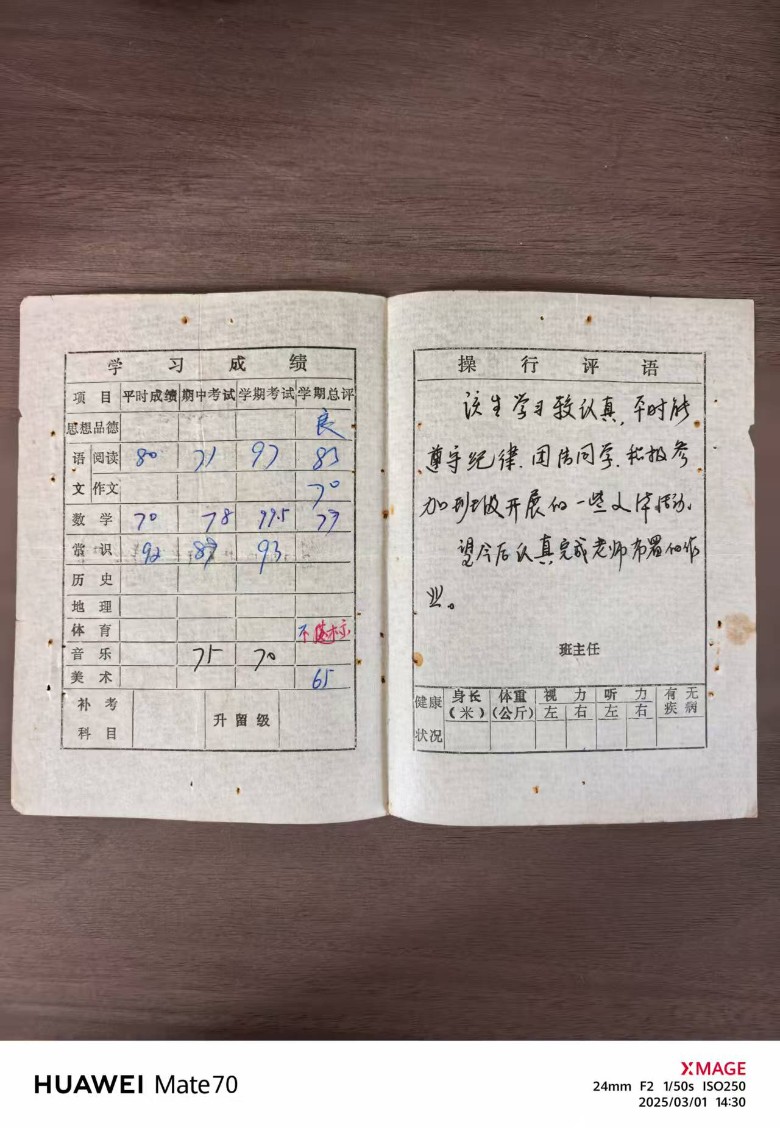 学 习 成 绩
项 目 平时成绩 期中考试 学期考试 学期总评
思想品德 良
语文 阅读 80 71 97 83
作文 70
数 学 70 78 99.5 77
常 识 92 87 93
历 史
地 理
体 育 不达标
音 乐 75 70
美 术 65
补考科目 升 留 级
操 行 评 语
该生学习较认真,平时能
遵守纪律,团结同学,积极参
加班级开展的一些文体活动。
望今后认真完成老师布置的作
业。
班主任
健康状况 身长(米) 体重(公斤) 视力 左 右 听力 左 右 有无疾病
HUAWEI Mate70
XMAGE
24mm F2 1/50s ISO250
2025/03/01 14:30